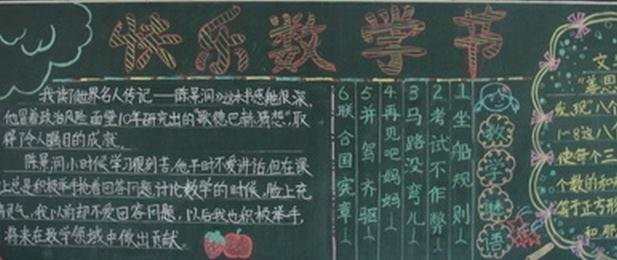 快乐数学节
我读了《世界名人传记——陈景润》这本书感触很深,
他冒着政治风险 面壁10年研究出的“歌德巴赫猜想”,取
得了令人瞩目的成就。
陈景润小时候学习很刻苦,他平时不爱讲话,但在课
上总是积极举手抢着回答问题 讨论数学的时候,脸上充
我以前却不爱回答问题,以后我也积极举手,
将来在数学领域中做出贡献。
数学谜语
1坐船规则
2考试不作弊
3马路没弯儿
4再见吧妈妈
5并驾齐驱
6联合国宪章
发现“八个
1-8这八个
使每个三
个数的和
等于正方形
和那